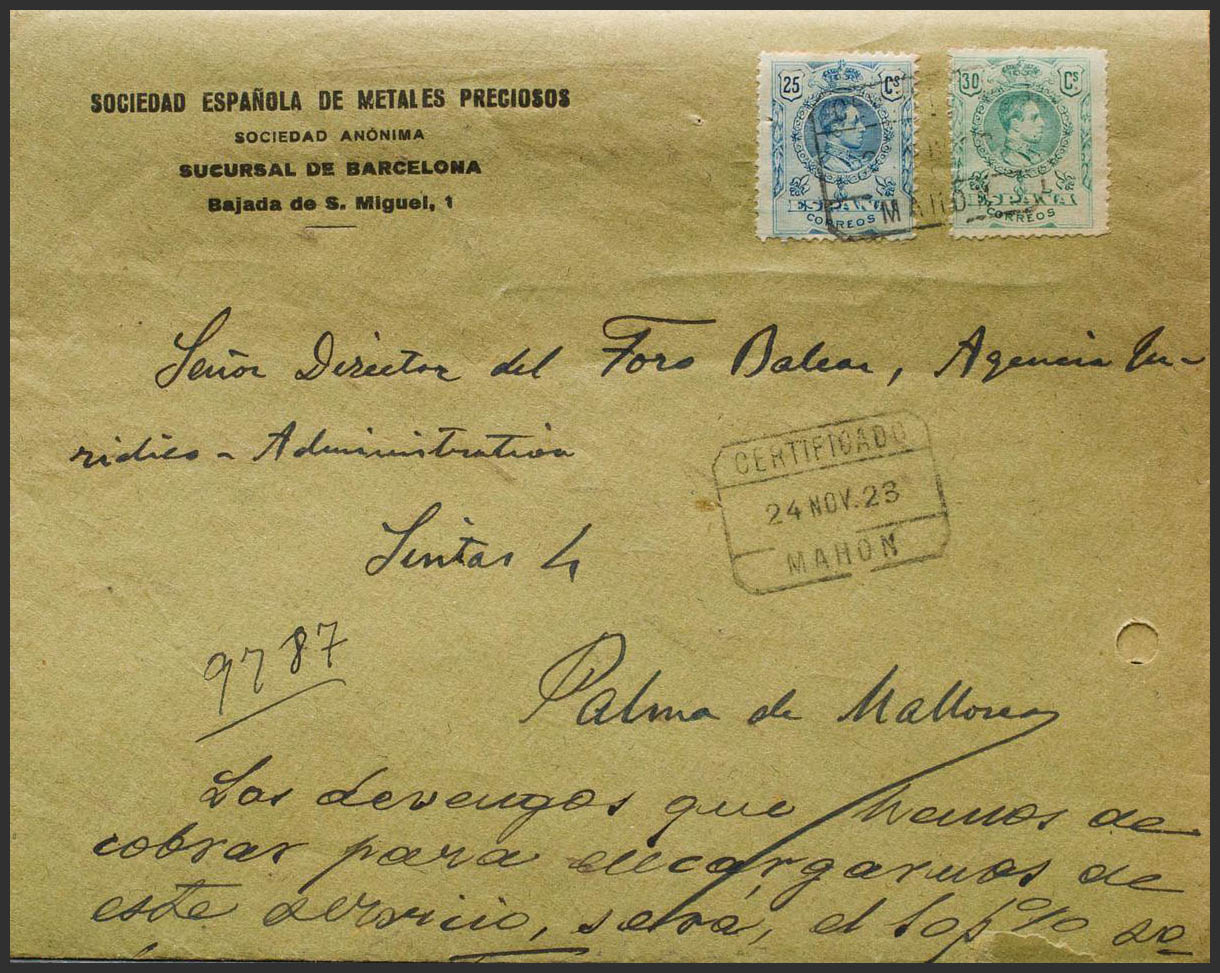 SOCIEDAD ESPAÑOLA DE METALES PRECIOSOS
SOCIEDAD ANÓNIMA
SUCURSAL DE BARCELONA
Bajada de S. Miguel, 1
25 Cs
CORREOS
30 Cs
CORREOS
MAHÓ
Señor Director del Foro Balear, Agencia Ju-
ridico - Administrativa
CERTIFICADO
24 NOV. 23
MAHÓN
Sintas 4
9787
Palma de Mallorca
Los devengos que hemos de
cobrar para encargarnos de
este servicio, será, el